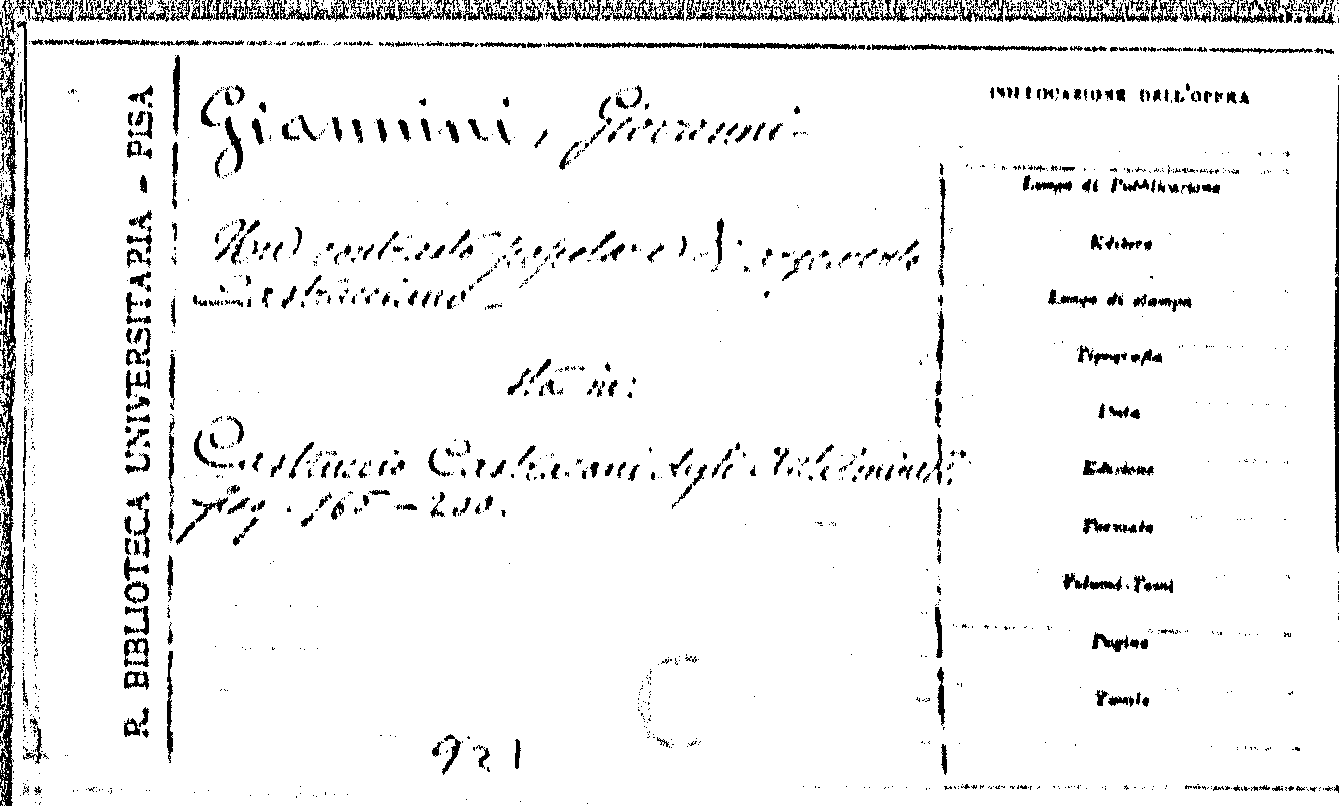 R. BIBLIOTECA UNIVERSITARIA - PISA
Giannini, Giovanni -
Un contrasto popolare di argomento
Castrucciano -
sta in:
Castruccio Castracani degli Antelminelli
pag. 165 - 200.
921
COLLOCAZIONE DELL'OPERA
Luogo di Pubblicazione
Editore
Luogo di stampa
Tipografia
Data
Edizione
Formato
Volumi-Tomi
Pagine
Tavole